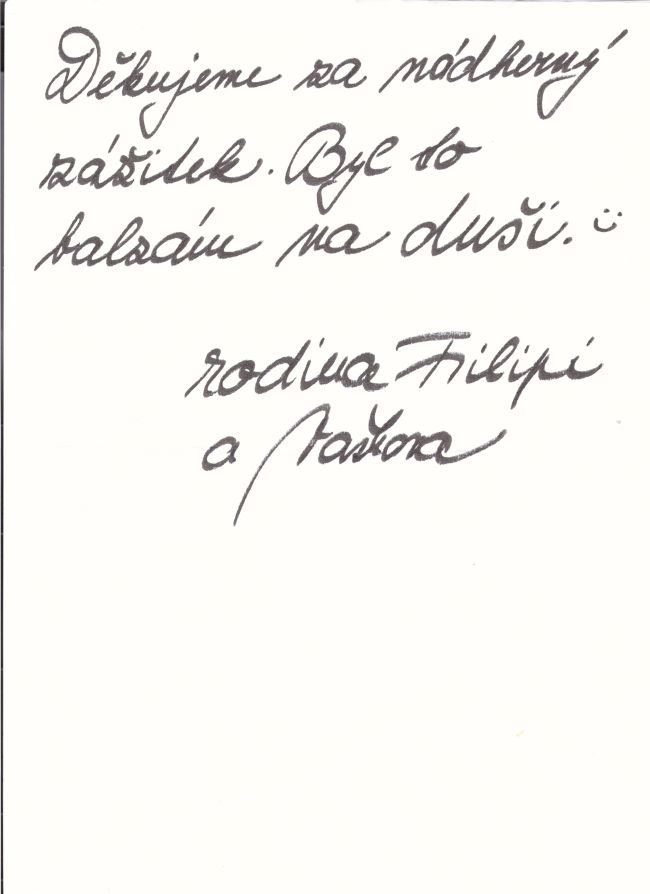 Děkujeme za nádherný
zážitek. Byl to
balzám na duši. :)
rodina Filipi
a